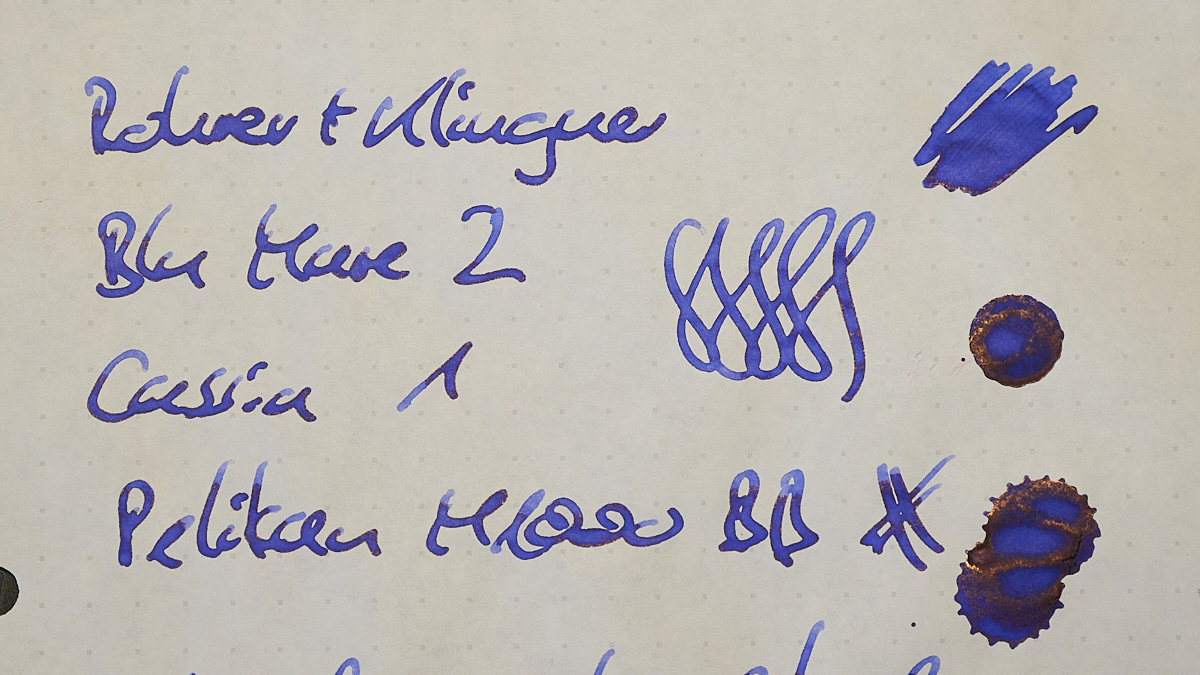 Rohrer + Klingner
Blu Mare 2
Cassia 1
Pelikan M1000 BB #